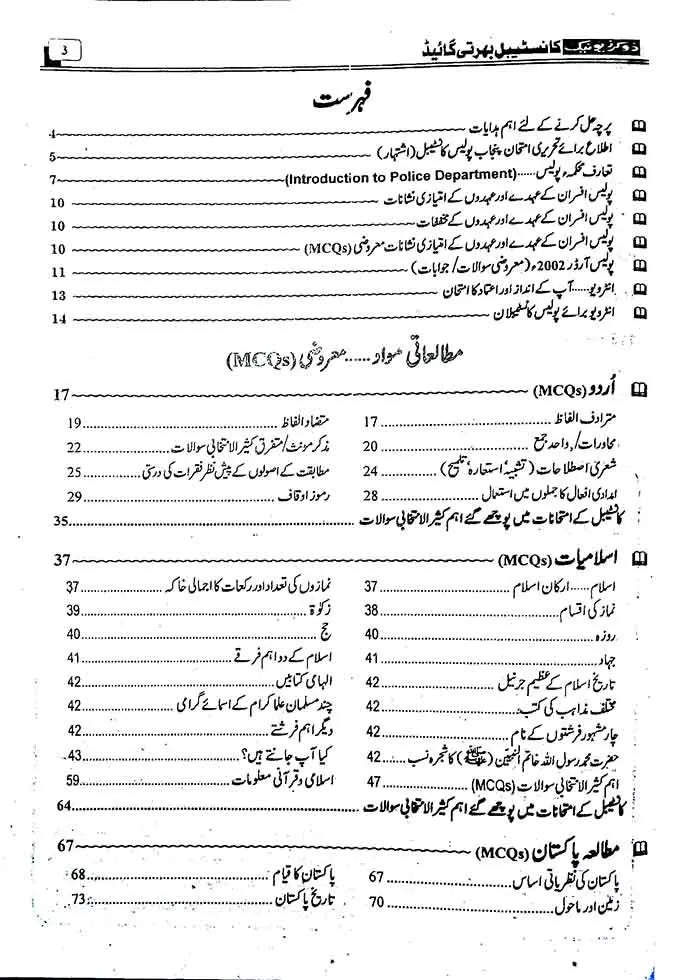 ڈوگرز یونیک کانسٹیبل بھرتی گائیڈ 3
فہرست
پرچہ حل کرنے کے لئے اہم ہدایات 4
اطلاع برائے تحریری امتحان پنجاب پولیس کانسٹیبل (اشتہار) 5
تعارف محکمہ پولیس......(Introduction to Police Department) 7
پولیس افسران کے عہدے اور عہدوں کے امتیازی نشانات 10
پولیس افسران کے عہدے اور عہدوں کے مخففات 10
پولیس افسران کے عہدے اور عہدوں کے امتیازی نشانات معروضی (MCQs) 10
پولیس آرڈر 2002ء (معروضی سوالات / جوابات) 11
انٹرویو......آپ کے انداز اور اعتماد کا امتحان 13
انٹرویو برائے پولیس کانسٹیبلان 14
مطالعاتی مواد......معروضی (MCQs)
اُردو (MCQs) 17
مترادف الفاظ 17 متضاد الفاظ 19
محاورات/واحد جمع 20 مذکر مونث/متفرق کثیر الانتخابی سوالات 22
شعری اصطلاحات (تشبیہ' استعارہ' تلمیح) 24 مطابقت کے اصولوں کے پیش نظر فقرات کی درستی 25
امدادی افعال کا جملوں میں استعمال 28 رموز اوقاف 29
کانسٹیبل کے امتحانات میں پوچھے گئے اہم کثیر الانتخابی سوالات 35
اسلامیات (MCQs) 37
اسلام......ارکان اسلام 37 نمازوں کی تعداد اور رکعات کا اجمالی خاکہ 37
نماز کی اقسام 38 زکوٰۃ 39
روزہ 40 حج 40
جہاد 41 اسلام کے دو اہم فرقے 41
تاریخ اسلام کے عظیم جرنیل 42 الہامی کتابیں 42
مختلف مذاہب کی کتب 42 چند مسلمان علما کرام کے اسمائے گرامی 42
چار مشہور فرشتوں کے نام 42 دیگر اہم فرشتے 42
حضرت محمد رسول اللہ خاتم النبیین (ﷺ) کا شجرہ نسب 42 کیا آپ جانتے ہیں؟ 43
اہم کثیر الانتخابی سوالات (MCQs) 47 اسلامی و قرآنی معلومات 59
کانسٹیبل کے امتحانات میں پوچھے گئے اہم کثیر الانتخابی سوالات 64
مطالعہ پاکستان (MCQs) 67
پاکستان کی نظریاتی اساس 67 پاکستان کا قیام 68
زمین اور ماحول 70 تاریخ پاکستان 73